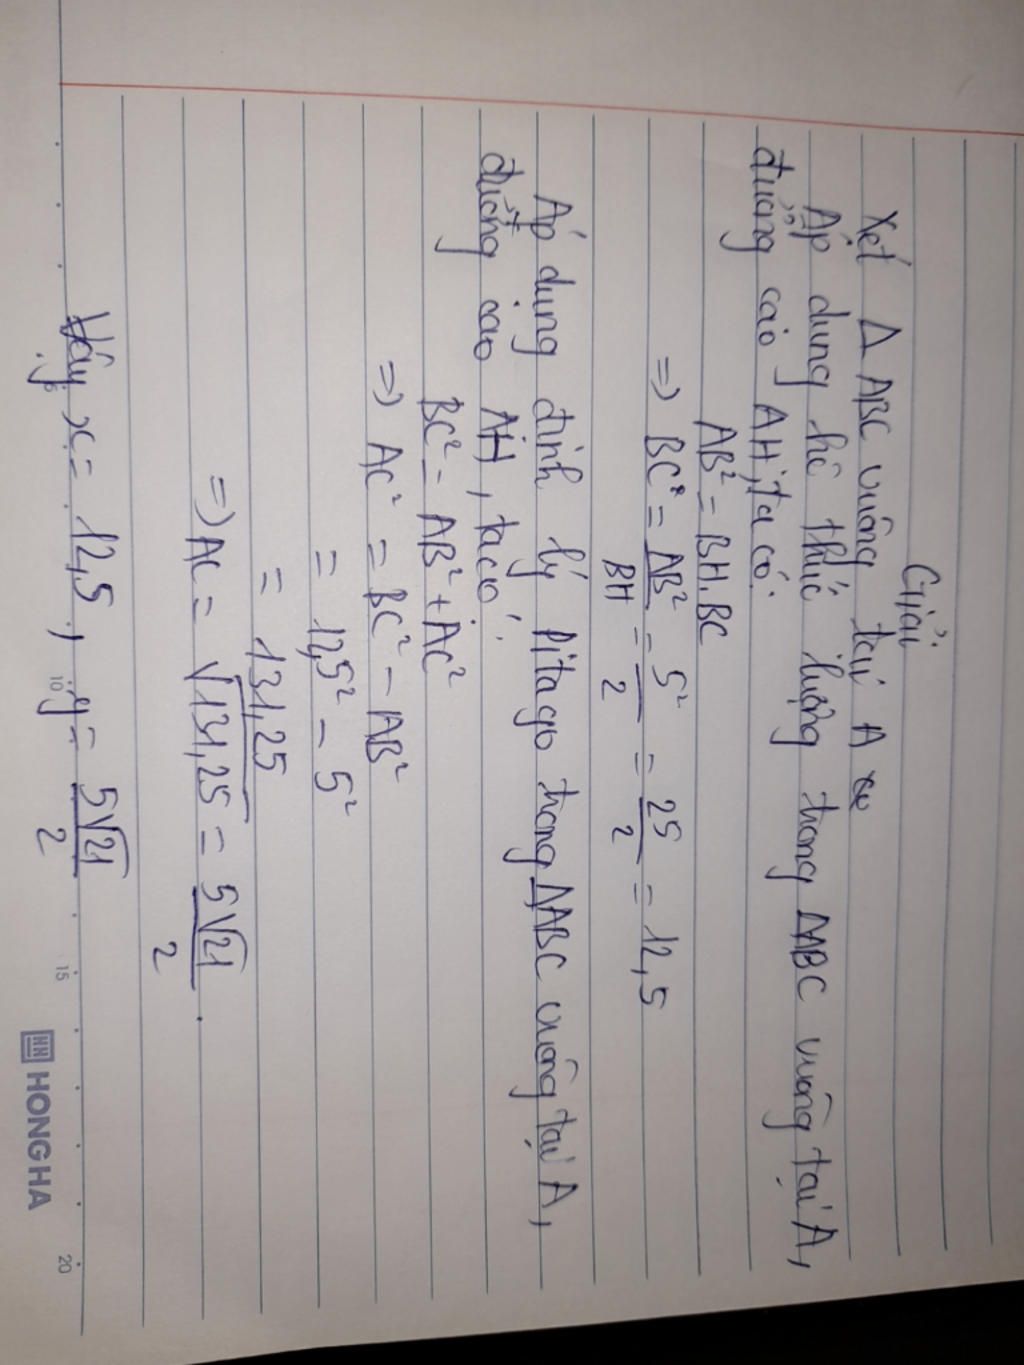 Giải
Xét Δ ABC vuông tại A
Áp dụng hệ thức lượng trong ΔABC vuông tại A,
đường cao AH, ta có:
AB² = BH.BC
=> BC² = AB²/BH = 5²/2 = 25/2 = 12,5
Áp dụng định lý Pitago trong ΔABC vuông tại A,
đường cao AH, ta có:
BC² = AB² + AC²
=> AC² = BC² - AB²
= 12,5² - 5²
= 131,25
=> AC = √131,25 = 5√21/2.
Vậy x = 12,5, y = 5√21/2
5 10 15 20
HH HONG HA